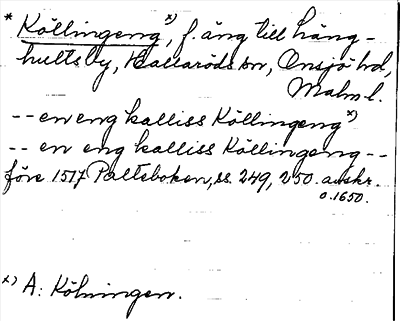 * Köllingeng x), f. äng till Häng-
hultsby, Hallaröds sn, Onsjö hd,
Malm l.
-- en eng kalliss Köllingeng x)
-- en eng kalliss Köllingeng --
före 1517 Palteboken, ss. 249, 250. avskr.
o. 1650.
x) A: Kölningen.